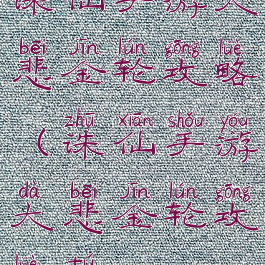 诛仙手游大
bēi jīn lún gōng lüè
悲金轮攻略
zhū xiān shǒu yóu
（诛仙手游
dà bēi jīn lún gōng
大悲金轮攻